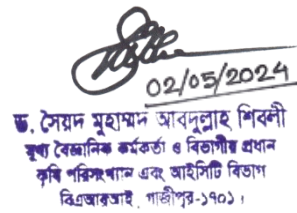 02/05/2024
ড. সৈয়দ মুহাম্মদ আবদুল্লাহ শিবলী
মুখ্য বৈজ্ঞানিক কর্মকর্তা ও বিভাগীয় প্রধান
কৃষি পরিসংখ্যান এবং আইসিটি বিভাগ
বিএআরআই, গাজীপুর-১৭০১।